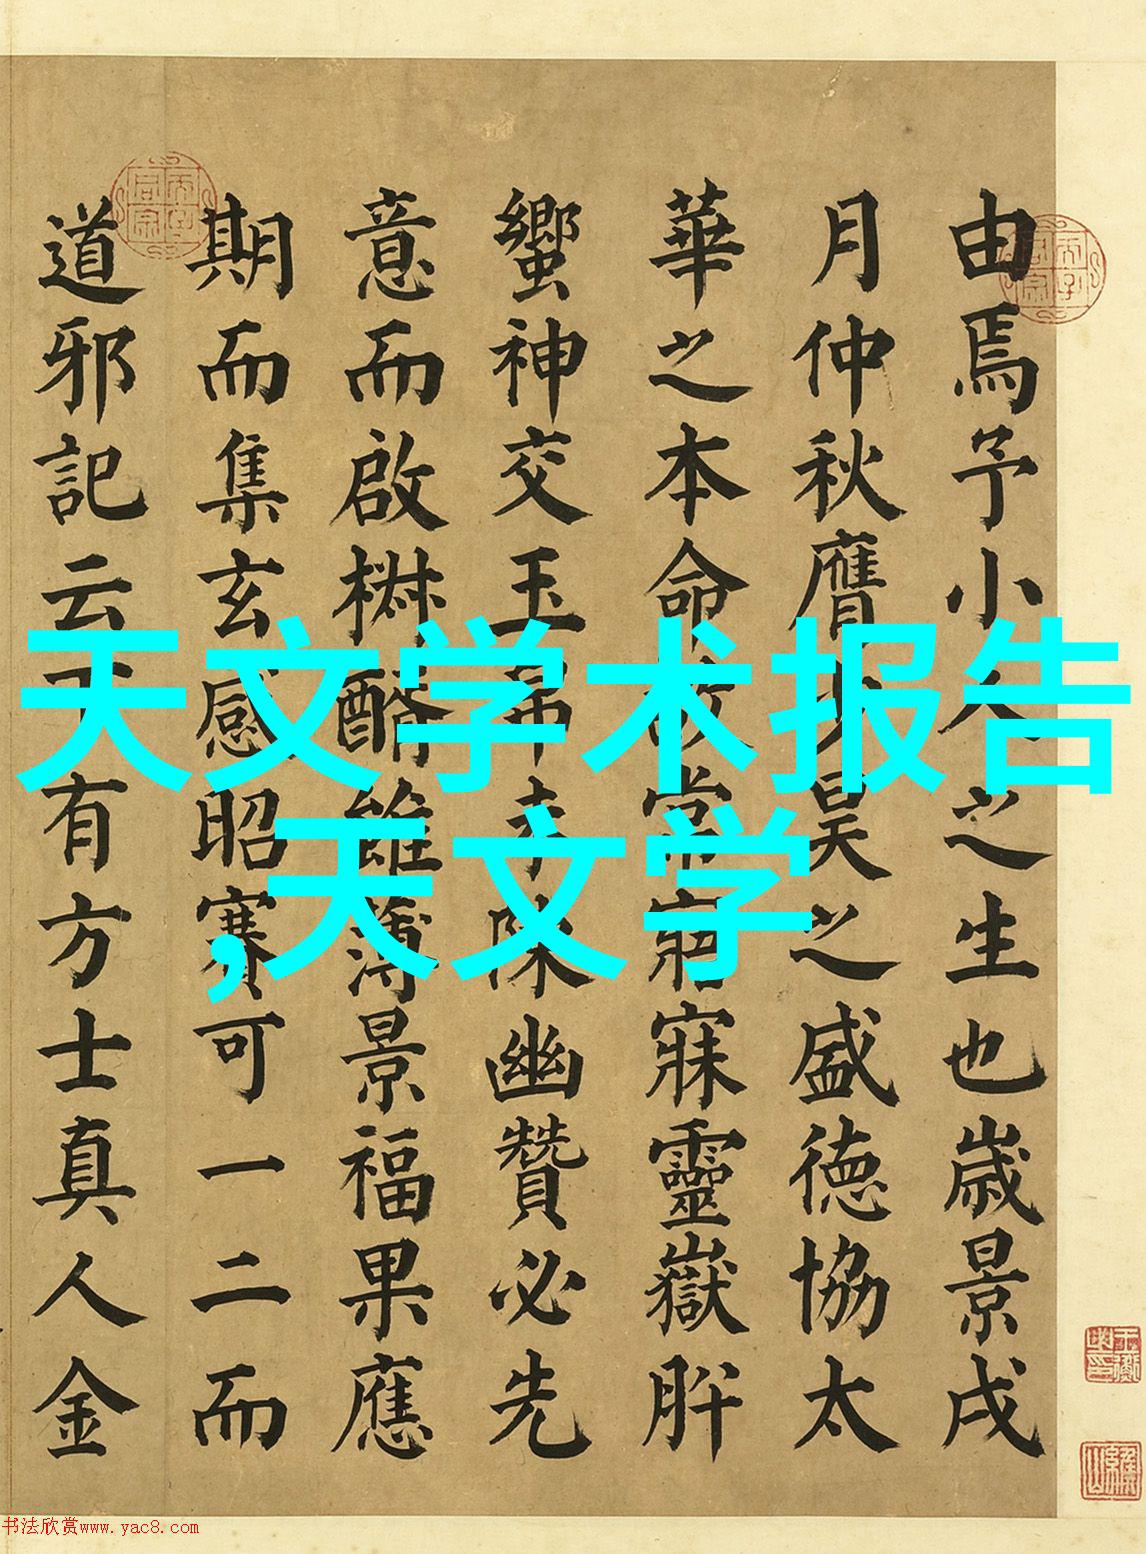 天文学术报告
,天文学
由焉予小人之生也歲景戌
月仲秋膺少昊之盛德協太
華之本命故常寤寐靈嶽肸
蠁神交玉帛未陳幽贊必先
意而啟樹酧雖薄景福果應
期而集玄感昭賽可一二而
道邪記云有方士真人金
书法欣赏www.yac8.com